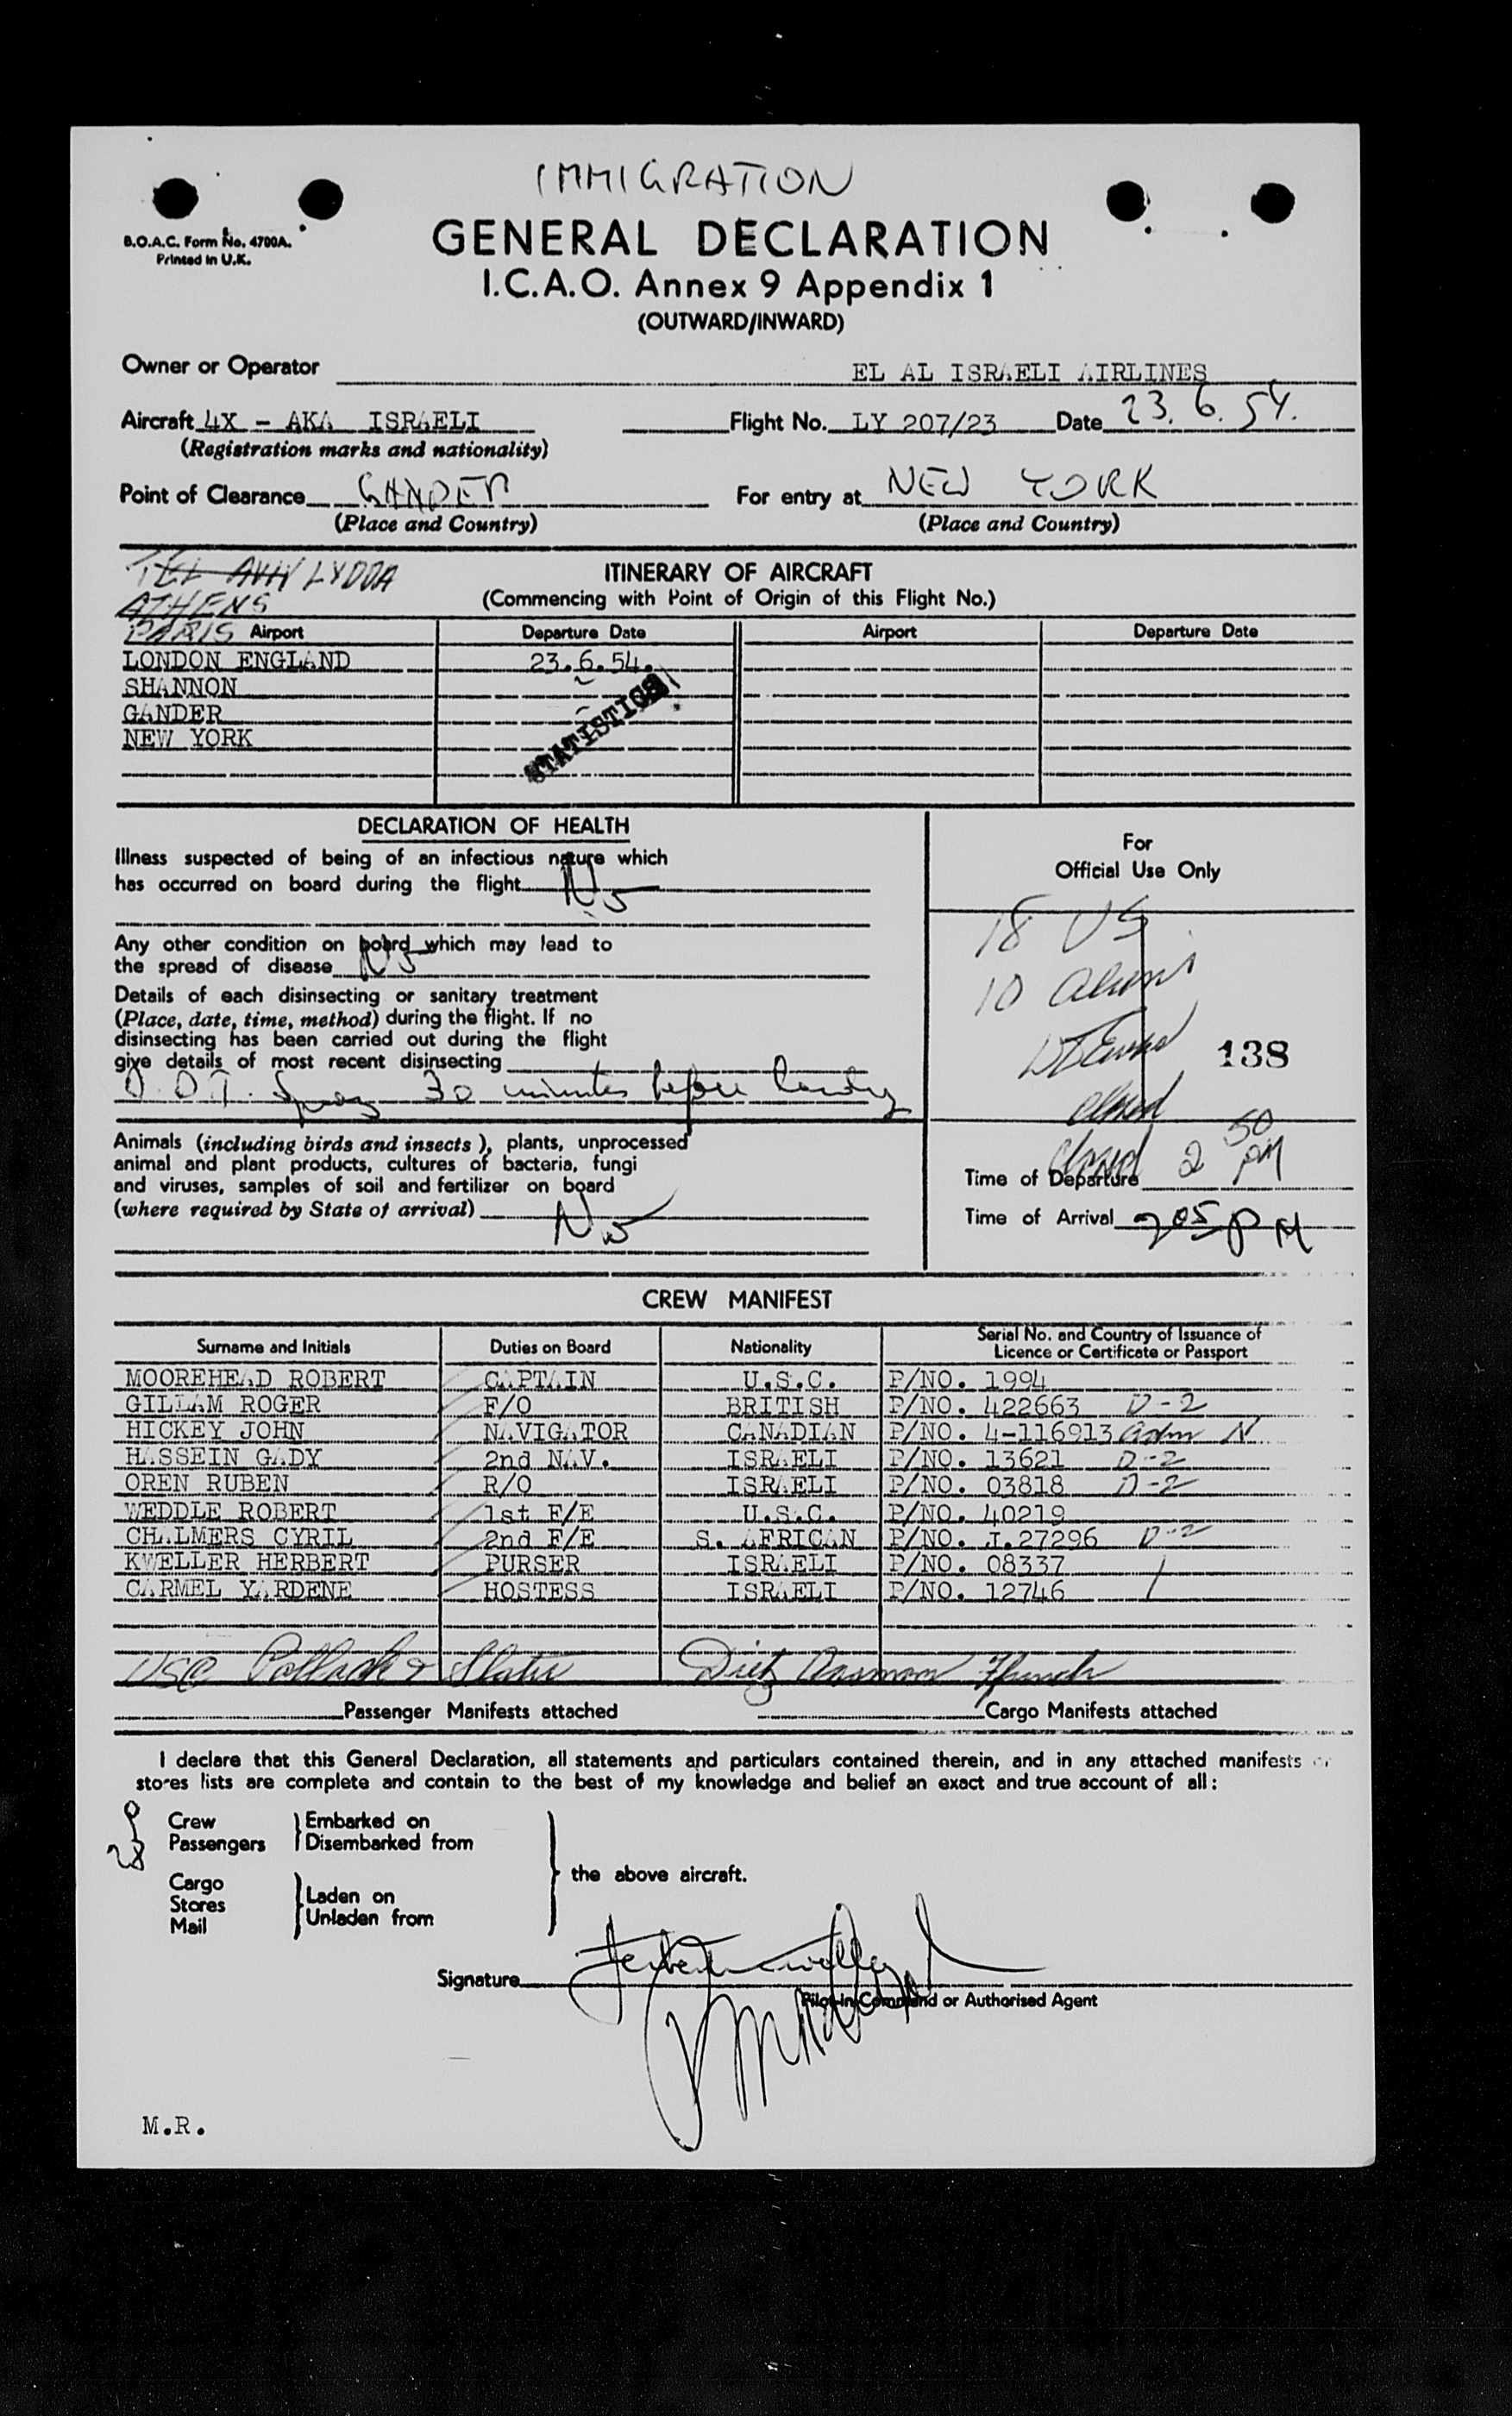 IMMIGRATION
B.O.A.C. Form No. 4700A.
Printed in U.K.
GENERAL DECLARATION
I.C.A.O. Annex 9 Appendix 1
(OUTWARD/INWARD)
Owner or Operator EL AL ISRAELI AIRLINES
Aircraft 4X - AKA ISRAELI Flight No. LY 207/23 Date 23.6.54.
(Registration marks and nationality)
Point of Clearance GANDER For entry at NEW YORK
(Place and Country) (Place and Country)
TEL AVIV LYDDA
ATHENS
PARIS
ITINERARY OF AIRCRAFT
(Commencing with Point of Origin of this Flight No.)
Airport Departure Date Airport Departure Date
LONDON ENGLAND 23.6.54.
SHANNON
GANDER
NEW YORK
STATISTICS
DECLARATION OF HEALTH
Illness suspected of being of an infectious nature which
has occurred on board during the flight No
Any other condition on board which may lead to
the spread of disease No
Details of each disinsecting or sanitary treatment
(Place, date, time, method) during the flight. If no
disinsecting has been carried out during the flight
give details of most recent disinsecting
D.D.T. Spray 30 minutes before landing
Animals (including birds and insects), plants, unprocessed
animal and plant products, cultures of bacteria, fungi
and viruses, samples of soil and fertilizer on board
(where required by State of arrival) No
For
Official Use Only
18 US
10 Aliens
138
closed
Time of Departure closed 2 50 PM
Time of Arrival 205 PM
CREW MANIFEST
Surname and Initials Duties on Board Nationality Serial No. and Country of Issuance of Licence or Certificate or Passport
MOOREHEAD ROBERT CAPTAIN U.S.C. P/NO. 1994
GILLAM ROGER F/O BRITISH P/NO. 422663 D-2
HICKEY JOHN NAVIGATOR CANADIAN P/NO. 4-116913 adm N
HASSEIN GADY 2nd NAV. ISRAELI P/NO. 13621 D-2
OREN RUBEN R/O ISRAELI P/NO. 03818 D-2
WEDDLE ROBERT 1st F/E U.S.C. P/NO. 40219
CHALMERS CYRIL 2nd F/E S. AFRICAN P/NO. J.27296 D-2
KWELLER HERBERT PURSER ISRAELI P/NO. 08337
CARMEL YARDENE HOSTESS ISRAELI P/NO. 12746
USC Pollack & Slater Dietz
Passenger Manifests attached Cargo Manifests attached
I declare that this General Declaration, all statements and particulars contained therein, and in any attached manifests or
stores lists are complete and contain to the best of my knowledge and belief an exact and true account of all:
9 Crew Embarked on
28 Passengers Disembarked from
the above aircraft.
Cargo
Stores Laden on
Mail Unladen from
Signature
Pilot-in-Command or Authorised Agent
M.R.